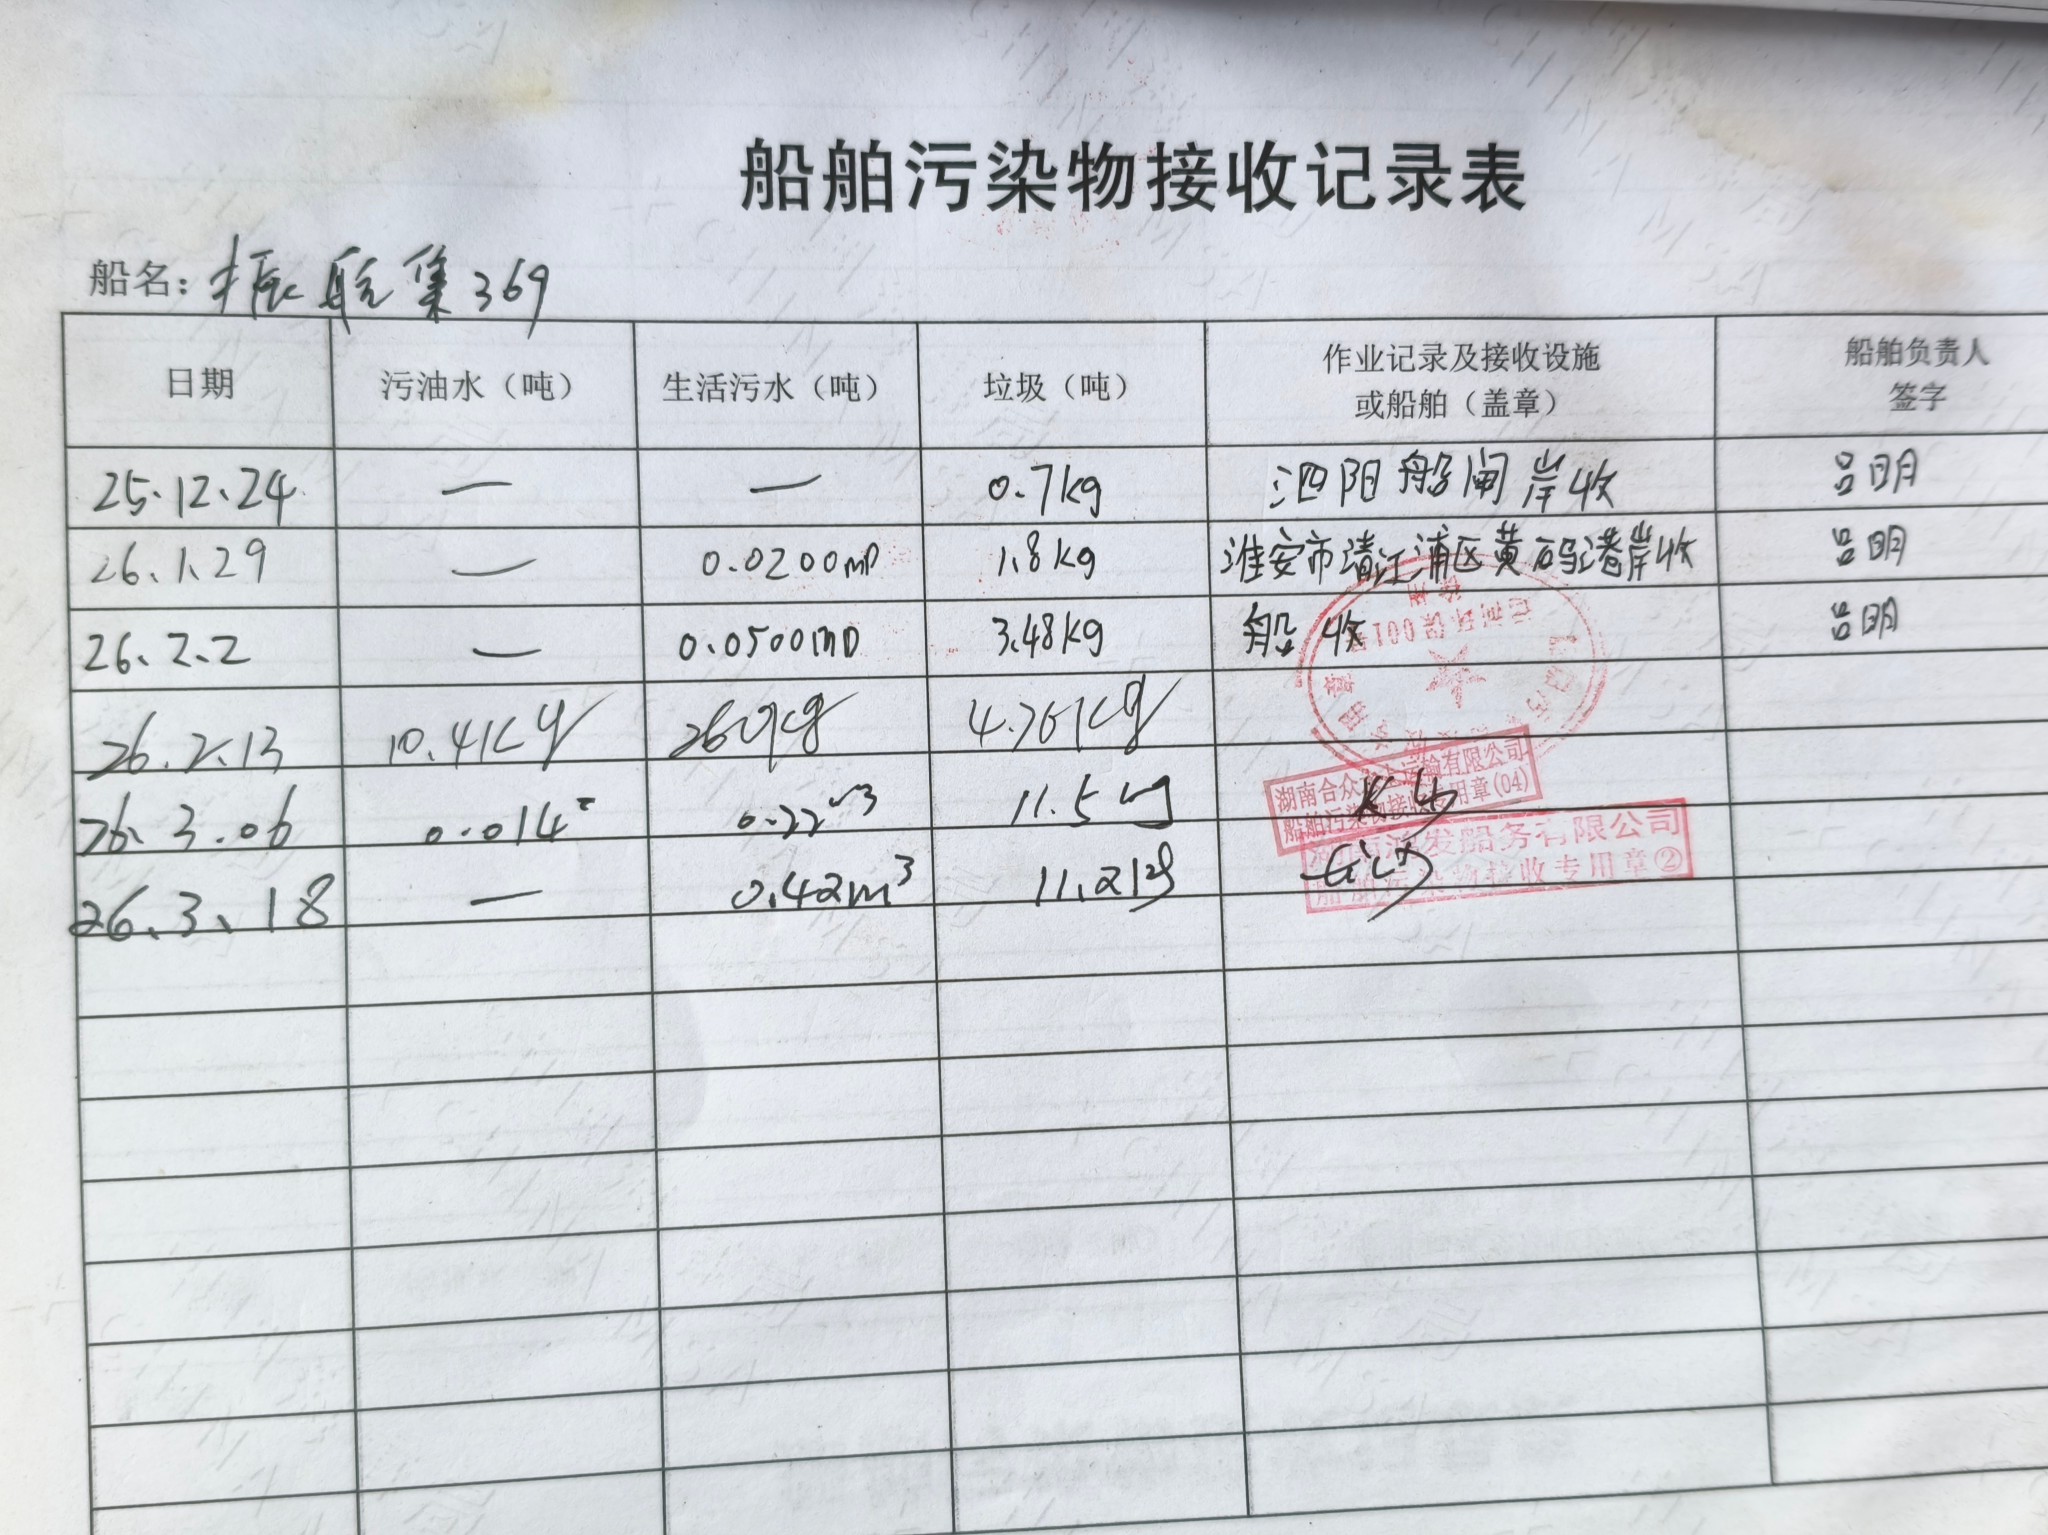 船舶污染物接收记录表
船名: 振航集369
日期 污油水（吨） 生活污水（吨） 垃圾（吨） 作业记录及接收设施或船舶（盖章） 船舶负责人签字
25.12.24 — — 0.7kg 泗阳船闸岸收 吕明
26.1.29 — 0.0200m³ 1.8kg 淮安市清江浦区黄码港岸收 吕明
26.2.2 — 0.0500m³ 3.48kg 船收 吕明
26.2.13 10.4kg 260kg 4.76kg
26.3.06 0.014 0.22m³ 11.5kg
湖南合众 运输有限公司
船舶污染物接收专用章(04)
26.3.18 — 0.42m³ 11.2kg
发船务有限公司
船舶污染物接收专用章②